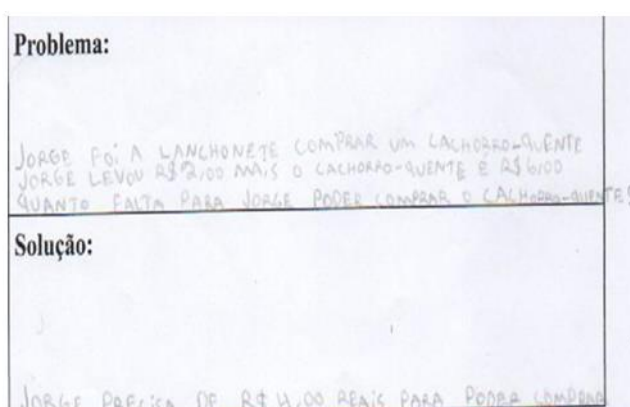 Problema:
JORGE FOI A LANCHONETE COMPRAR UM CACHORRO-QUENTE
JORGE LEVOU R$ 2,00 MAIS O CACHORRO-QUENTE É R$ 6,00
QUANTO FALTA PARA JORGE PODER COMPRAR O CACHORRO-QUENTE?
Solução:
JORGE PRECISA DE R$ 4,00 REAIS PARA PODER COMPRAR